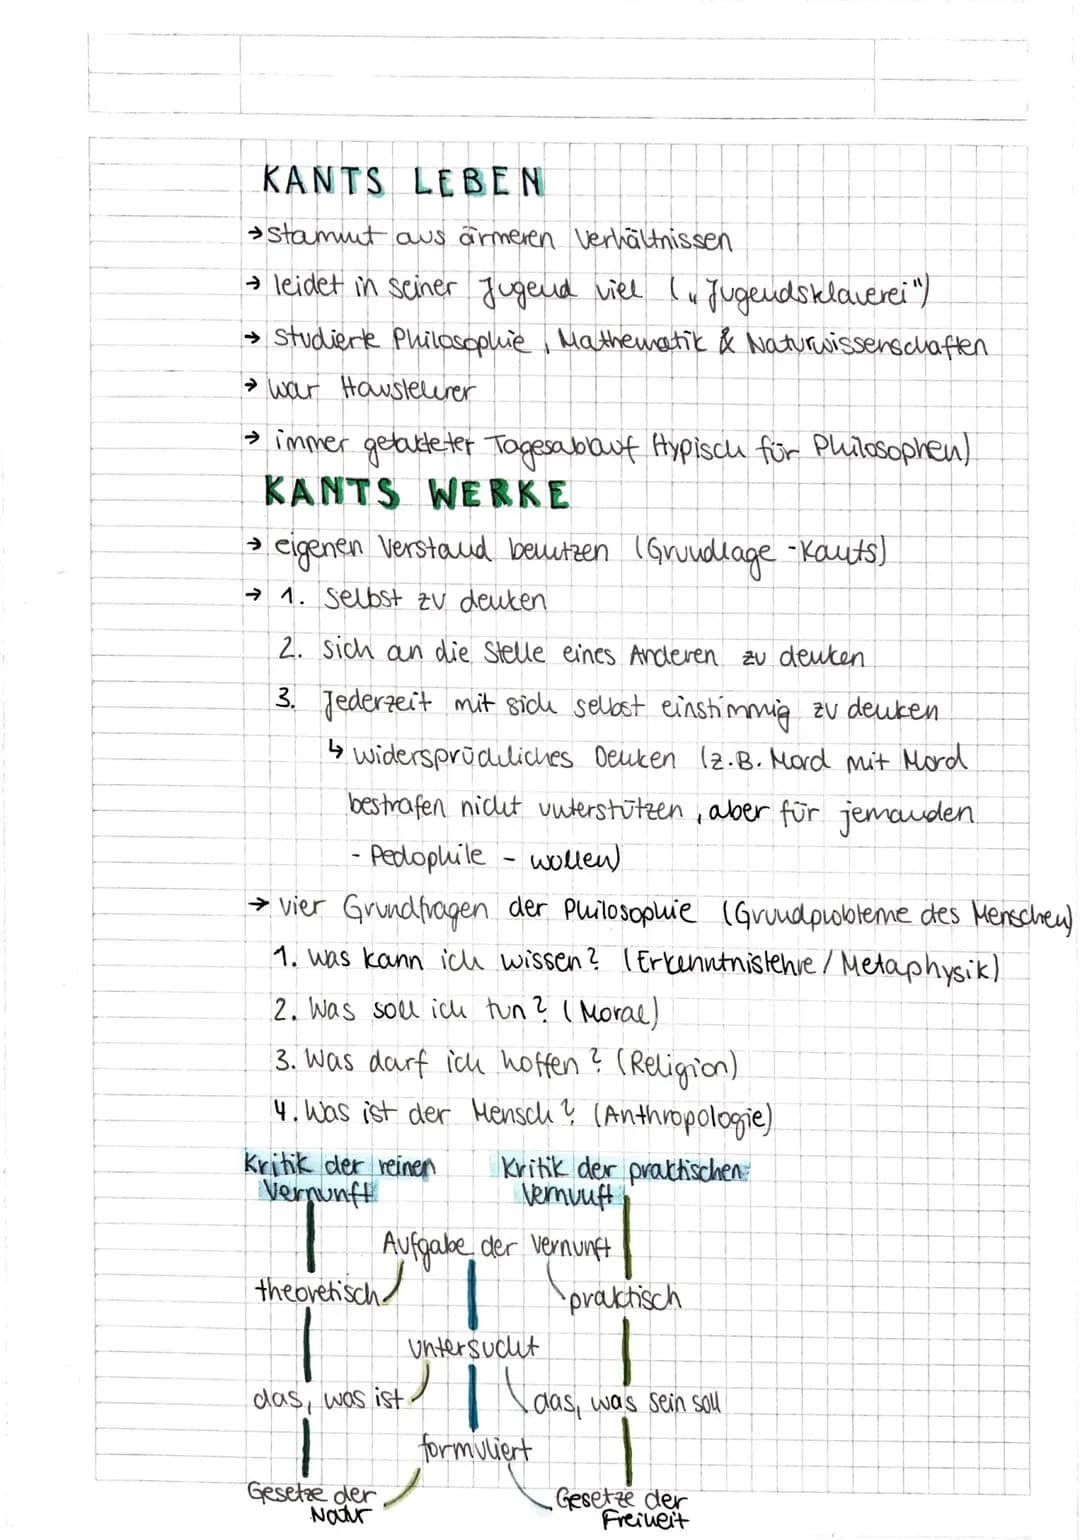 KANTS LEBEN
→ stammt aus ärmeren Verhältnissen
→ leidet in seiner Jugend viel („Jugendsklaverei")
→ Studierte Philosophie, Mathematik & Naturwissenschaften
→ war Hauslehrer
→ immer getakteter Tagesablauf (typisch für Philosophen)
KANTS WERKE
→ eigenen Verstand benutzen (Grundlage - Kants)
→ 1. Selbst zu denken
2. sich an die Stelle eines Anderen zu denken
3. Jederzeit mit sich selbst einstimmig zu denken
↳ widersprüchliches Denken (z.B. Mord mit Mord
bestrafen nicht unterstützen, aber für jemanden
- Pedophile - wollen)
→ vier Grundfragen der Philosophie (Grundprobleme des Menschen)
1. Was kann ich wissen? (Erkenntnislehre / Metaphysik)
2. Was soll ich tun? (Moral)
3. Was darf ich hoffen? (Religion)
4. Was ist der Mensch? (Anthropologie)
Kritik der reinen Kritik der praktischen
Vernunft Vernunft
Aufgabe der Vernunft
theoretisch praktisch
untersucht
das, was ist das, was sein soll
formuliert
Gesetze der Gesetze der
Natur Freiheit